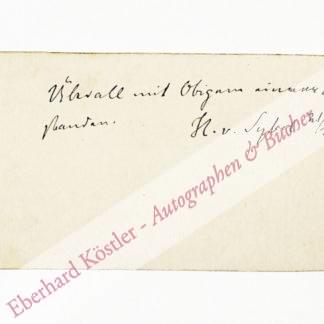 Überall mit Obigem einver
standen.
H. v. Sybel
Eberhard Köstler - Autographen & Bücher